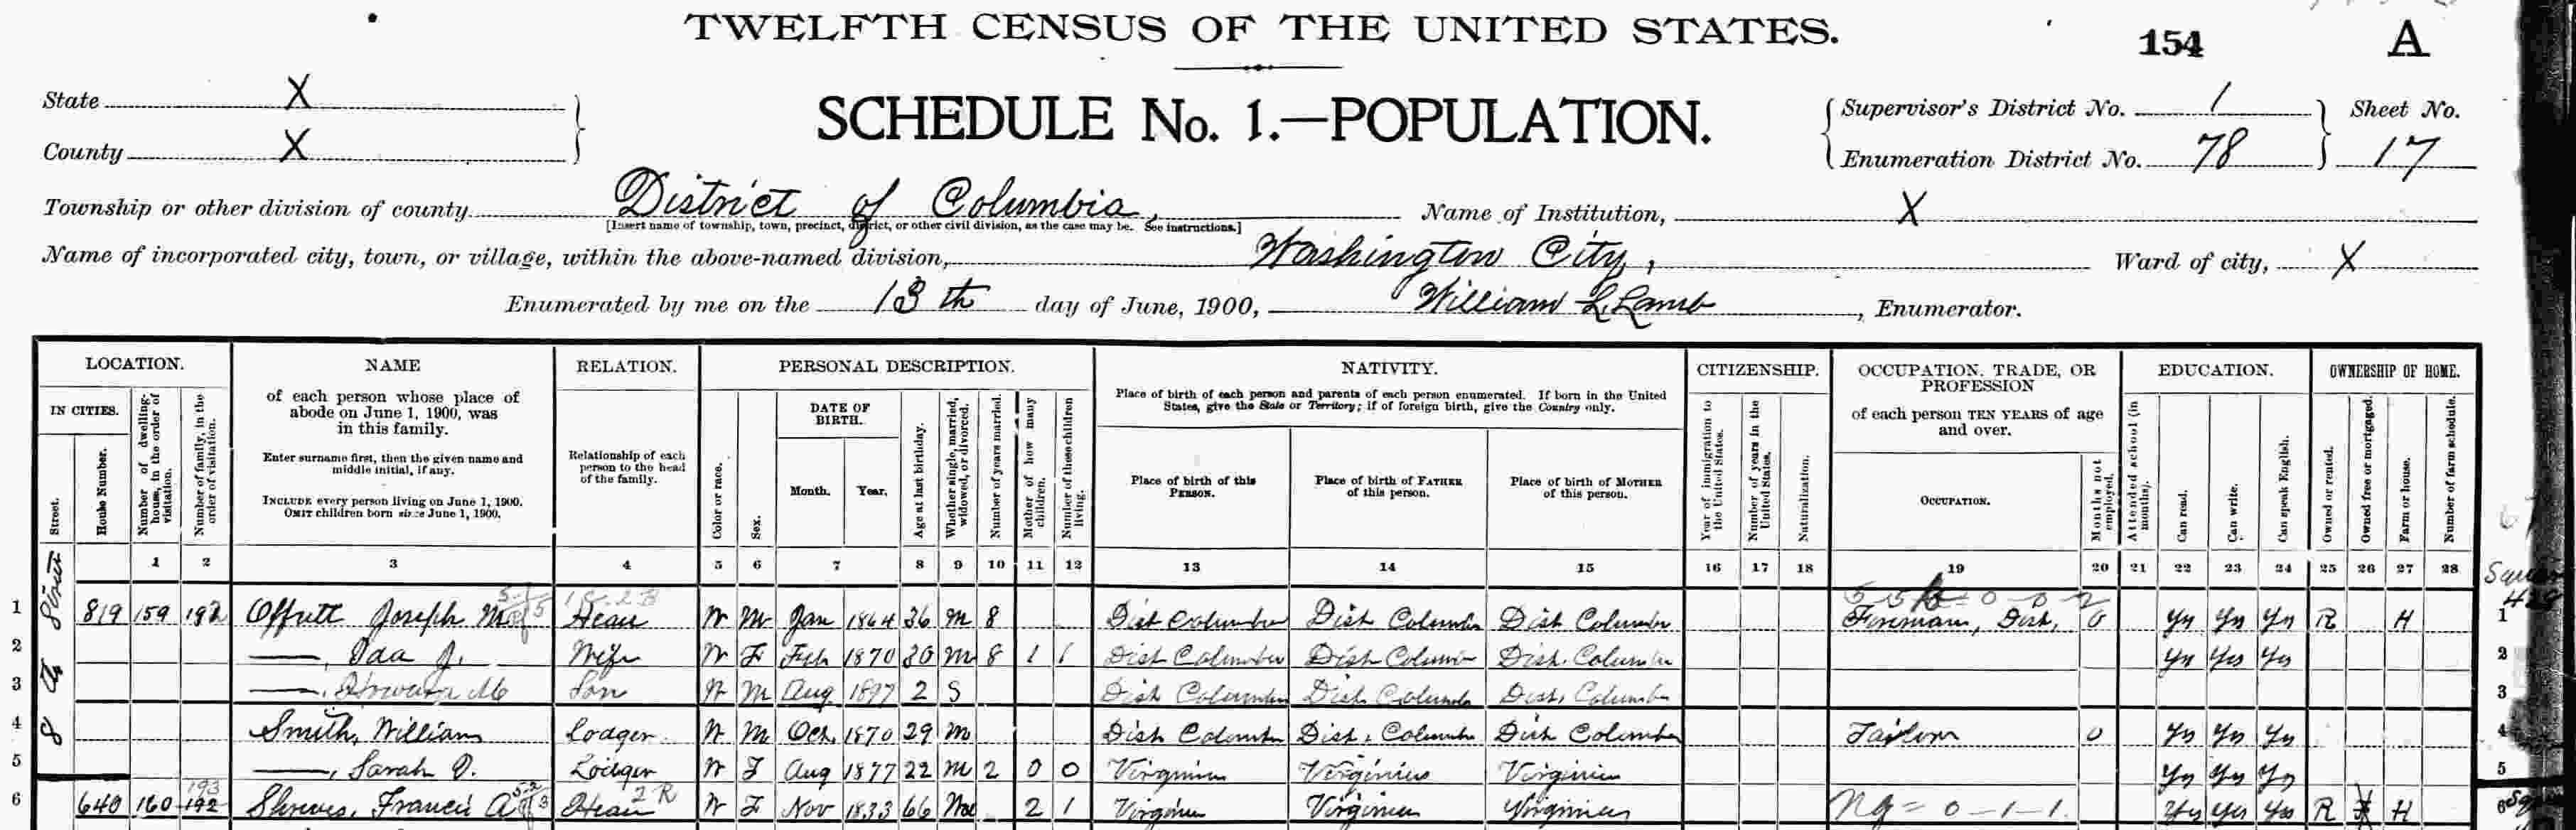 TWELFTH CENSUS OF THE UNITED STATES.
154 A
State X
County X
SCHEDULE No. 1.—POPULATION.
Supervisor's District No. 1
Enumeration District No. 78
Sheet No.
17
Township or other division of county District of Columbia, Name of Institution, X
[Insert name of township, town, precinct, district, or other civil division, as the case may be. See instructions.]
Name of incorporated city, town, or village, within the above-named division, Washington City, Ward of city, X
Enumerated by me on the 13th day of June, 1900, William L. Lamb, Enumerator.
LOCATION.
IN CITIES.
Street.
House Number.
Number of dwelling-house, in the order of visitation.
Number of family, in the order of visitation.
NAME
of each person whose place of abode on June 1, 1900, was in this family.
Enter surname first, then the given name and middle initial, if any.
INCLUDE every person living on June 1, 1900.
OMIT children born since June 1, 1900.
RELATION.
Relationship of each person to the head of the family.
PERSONAL DESCRIPTION.
Color or race.
Sex.
DATE OF BIRTH.
Month. Year.
Age at last birthday.
Whether single, married, widowed, or divorced.
Number of years married.
Mother of how many children.
Number of these children living.
NATIVITY.
Place of birth of each person and parents of each person enumerated. If born in the United States, give the State or Territory; if of foreign birth, give the Country only.
Place of birth of this PERSON.
Place of birth of FATHER of this person.
Place of birth of MOTHER of this person.
CITIZENSHIP.
Year of immigration to the United States.
Number of years in the United States.
Naturalization.
OCCUPATION, TRADE, OR PROFESSION
of each person TEN YEARS of age and over.
OCCUPATION.
Months not employed.
EDUCATION.
Attended school (in months).
Can read.
Can write.
Can speak English.
OWNERSHIP OF HOME.
Owned or rented.
Owned free or mortgaged.
Farm or house.
Number of farm schedule.
1 2 3 4 5 6 7 8 9 10 11 12 13 14 15 16 17 18 19 20 21 22 23 24 25 26 27 28
8th Street
1 819 159 192 Offutt Joseph M Head W M Jan 1864 36 M 8 Dist Columbia Dist Columbia Dist Columbia Fireman, Dist, 0 Yes Yes Yes R H 1
2 —, Ida J. Wife W F Feb 1870 30 M 8 1 1 Dist Columbia Dist Columbia Dist. Columbia Yes Yes Yes 2
3 —, Howard M Son W M Aug 1897 2 S Dist Columbia Dist. Columbia Dist. Columbia 3
4 Smith, William Lodger W M Oct. 1870 29 M Dist Columbia Dist. Columbia Dist Columbia Tailor 0 Yes Yes Yes 4
5 —, Sarah V. Lodger W F Aug 1877 22 M 2 0 0 Virginia Virginia Virginia Yes Yes Yes 5
6 640 160 193 192 Shreves, Francis A Head W F Nov 1833 66 Wd 2 1 Virginia Virginia Virginia Ng = 0 - 1 - 1 Yes Yes Yes R H 6